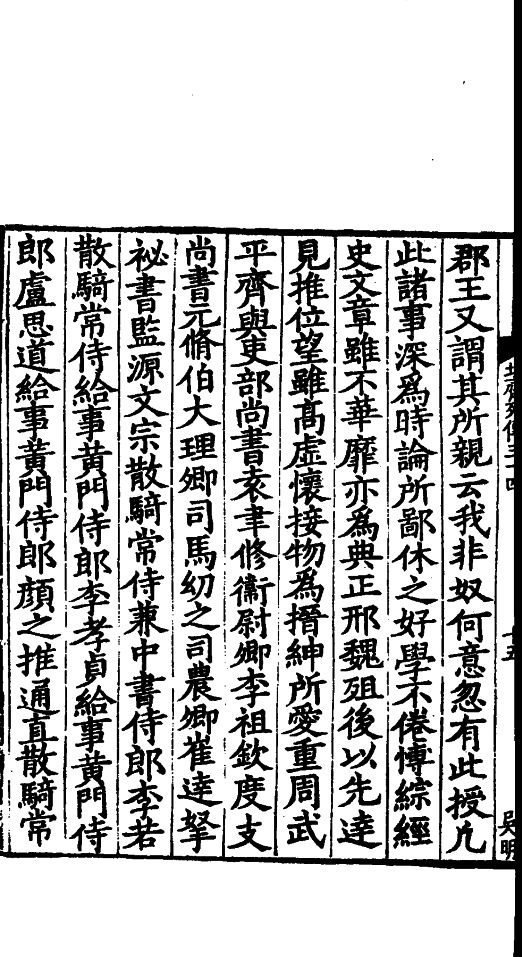 郡王又謂其所親云我非奴何意忽有此授凢
此諸事深爲時論所鄙休之好學不倦愽綜經
史文章雖不華靡亦爲典正邢魏殂後以先達
見推位望雖髙虚懷接物爲搢紳所愛重周武
平齊與吏部尚書袁聿修衞尉卿李祖欽度支
尚書元脩伯大理卿司馬幼之司農卿崔達拏
祕書監源文宗散騎常侍兼中書侍郎李若
散騎常侍給事黄門侍郎李孝貞給事黄門侍
郎盧思道給事黄門侍郎顔之推通直散騎常